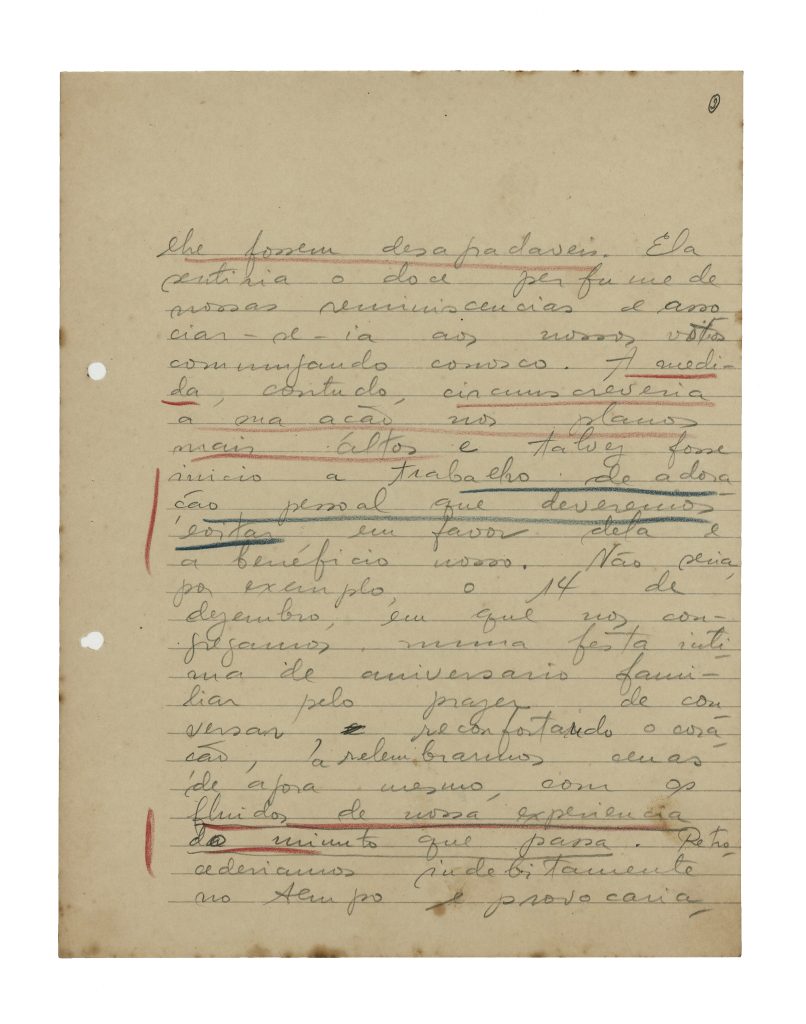 lhe fossem desagradaveis. Ela
sentiria o doce perfume de
nossas reminiscencias e asso
ciar-se-ia aos nossos votos
comungando conosco. A medi-
da, contudo, circunscreveria
a sua acão nos planos
mais altos e talvez fosse
inicio a trabalho de adora
ção pessoal que deveremos
em favor dela e
a benéficio nosso. Não seria,
por exemplo, o 14 de
dezembro, em que nos con-
gregamos numa festa inti
ma de aniversario fami-
liar pelo prazer de con
versar e reconfortando o cora
cão, a relembrarmos cenas
de agora mesmo, com os
fluidos de nossa experiencia
do minuto que passa. Retro
cederiamos indebitamente
no tempo e provocaria